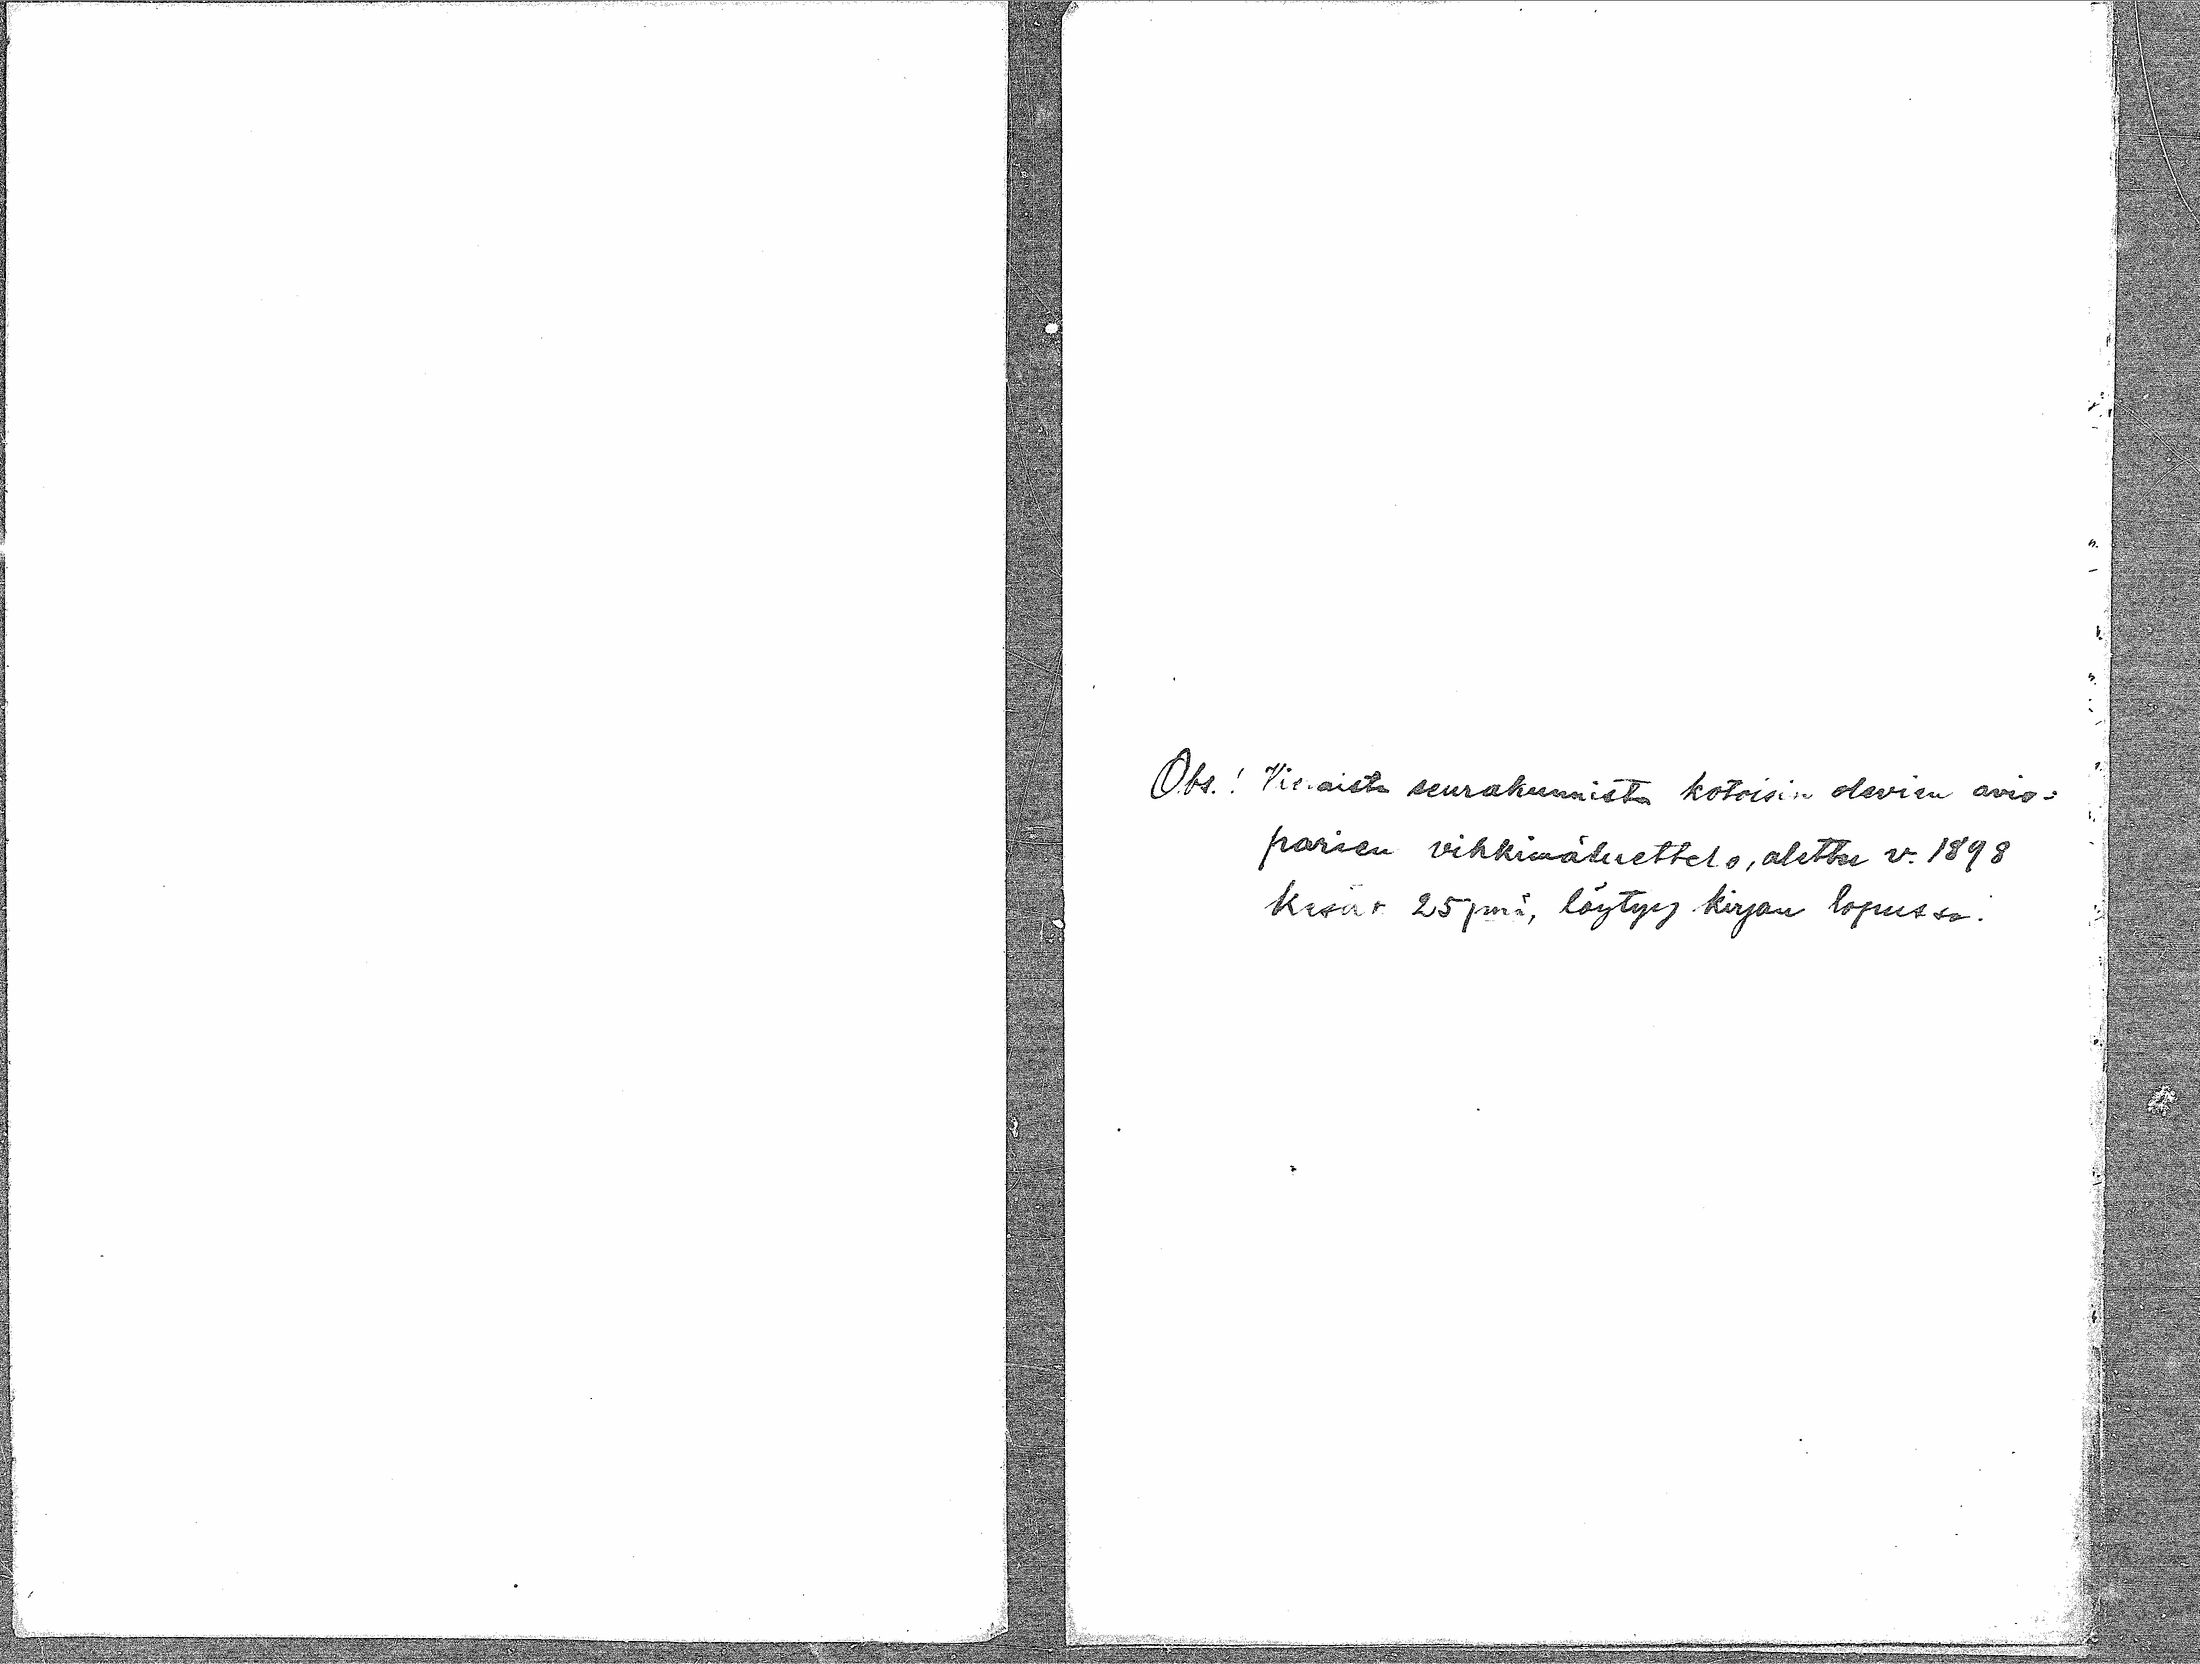 Obs.! Vieraista seurakunnista kotoisin olevien avio-
parien vihkimäluettelo, alettu v. 1898
Kesäk. 25 pnä, löytyy kirjan lopussa.